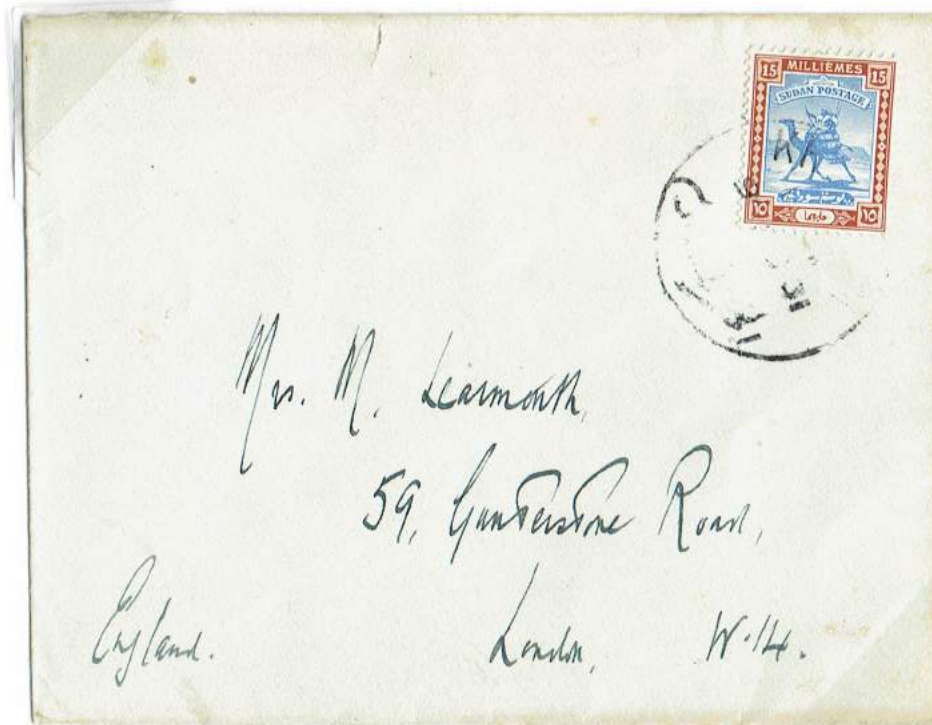 15 MILLIÈMES 15
SUDAN POSTAGE
١٥ ١٥
Mrs. M. Learmonth,
59, Gunterstone Road,
London, W.14.
England.